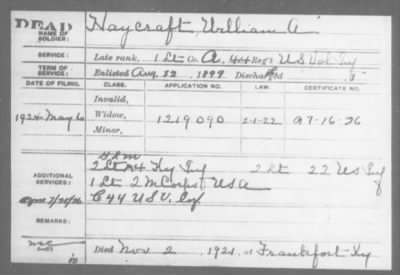 DEAD
NAME OF SOLDIER: Haycraft, William A
SERVICE: Late rank, 1 Lt Co. A, 44 Reg't US Vol Inf
TERM OF SERVICE: Enlisted Aug 22, 1899, Discharged
DATE OF FILING. CLASS. APPLICATION NO. LAW. CERTIFICATE NO.
Invalid,
1924 May 6 Widow, 1219090 2-1-22 A7-16-26
Minor,
ADDITIONAL SERVICES:
2 Lt 4 Ky Inf 2 Lt 22 US Inf
1 Lt 2 M Corps USA
C 44 USV Inf
REMARKS:
Died Nov 2, 1921, at Frankfort Ky